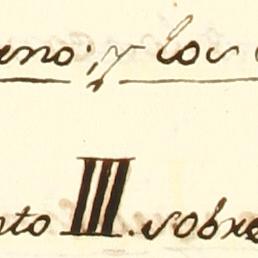 eno; y los
nto III. sobre